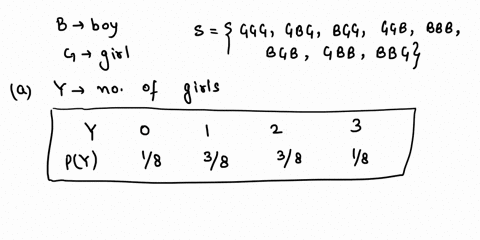 B → boy
G → girl
S = { GGG, GBG, BGG, GGB, BBB,
BGB, GBB, BBG}
(a) Y → no. of girls
Y 0 1 2 3
P(Y) 1/8 3/8 3/8 1/8